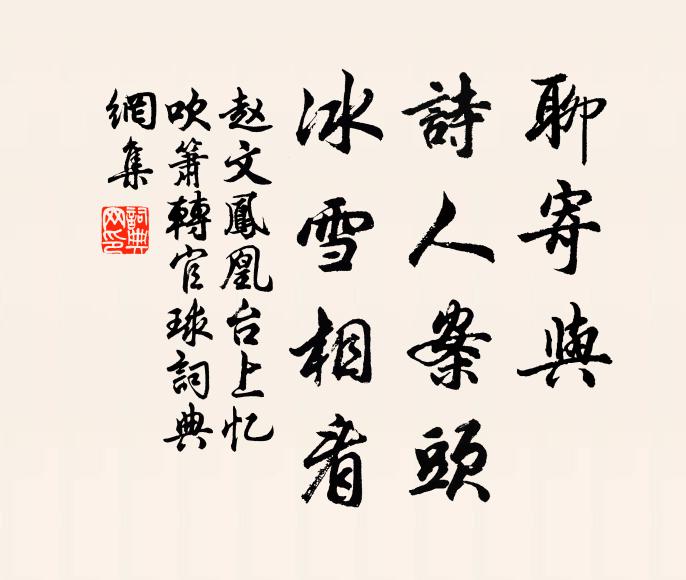 聊寄與
詩人案頭
冰雪相看
赵文鳳凰台上忆
吹簫轉官球詞典
網集
詞典
网印